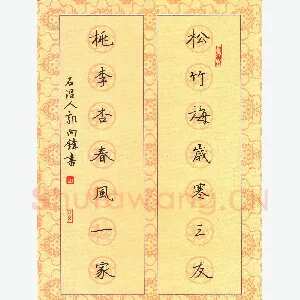 松竹梅歲寒三友
桃李杏春風一家
石沼人郭向鏡書
Shufawang.CN